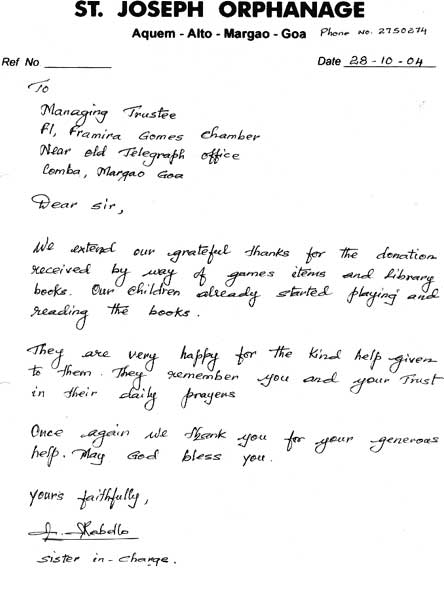 ST. JOSEPH ORPHANAGE
Aquem - Alto - Margao - Goa Phone No. 2750274
Ref No Date 28-10-04
To
Managing Trustee
F1, Framira Gomes Chamber
Near old Telegraph office
Comba, Margao Goa
Dear sir,
We extend our grateful thanks for the donation
received by way of games items and library
books. Our children already started playing and
reading the books.
They are very happy for the kind help given
to them. They remember you and your Trust
in their daily prayers
Once again we thank you for your generous
help. May God bless you.
yours faithfully,
Rabello
sister in-charge.